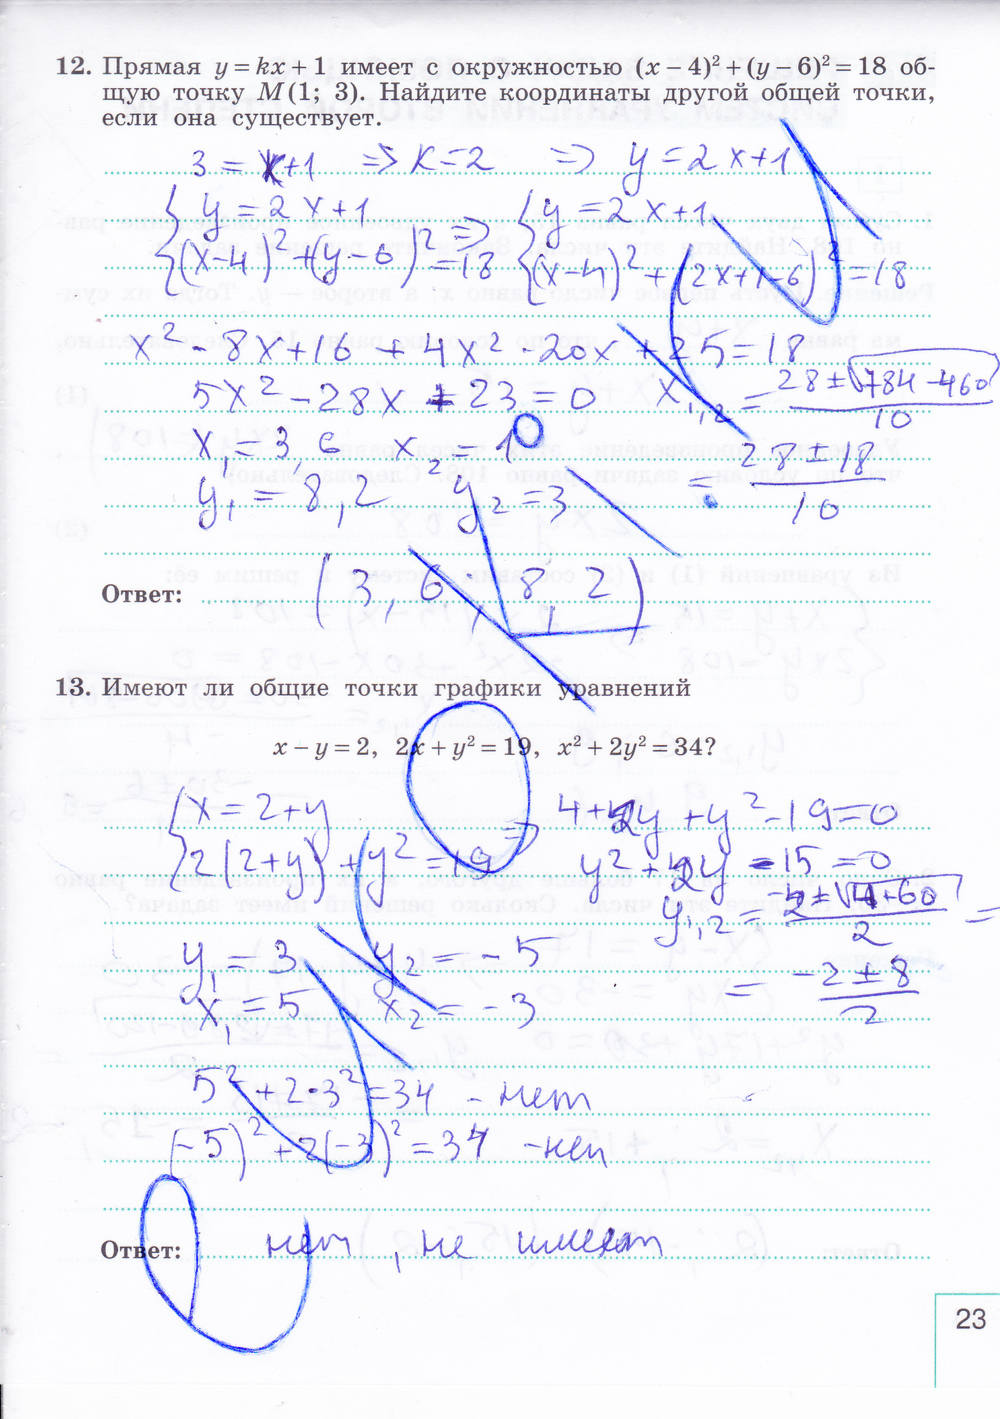 12. Прямая y = kx + 1 имеет с окружностью (x − 4)² + (y − 6)² = 18 об-
щую точку M(1; 3). Найдите координаты другой общей точки,
если она существует.
3 = k+1 => k=2 => y = 2x+1
{ y = 2x+1 => { y = 2x+1
{ (x-4)² + (y-6)² = 18 { (x-4)² + (2x+1-6)² = 18
x² - 8x + 16 + 4x² - 20x + 25 = 18
5x² - 28x + 23 = 0 x₁,₂ = (28 ± √(784-460))/10
x₁ = 3,6 x₂ = 1 = (28 ± 18)/10
y₁ = 8,2 y₂ = 3
Ответ: (3,6; 8,2)
13. Имеют ли общие точки графики уравнений
x − y = 2, 2x + y² = 19, x² + 2y² = 34?
{ x = 2+y => 4+2y + y² - 19 = 0
{ 2(2+y) + y² = 19 y² + 2y - 15 = 0
y₁,₂ = (-2 ± √(4+60))/2 =
y₁ = 3 y₂ = -5 = (-2 ± 8)/2
x₁ = 5 x₂ = -3
5² + 2·3² = 34 - нет
(-5)² + 2(-3)² = 34 - нет
Ответ: нет, не имеют
23